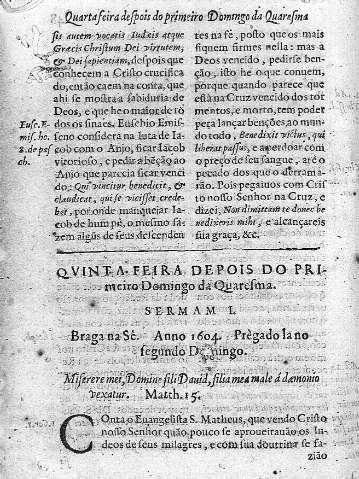 Quarta feira despois do primeiro Domingo da Quaresma
sis autem vocatis Iudæis atque
Græcis Christum Dei virtutem,
& Dei sapientiam, despois que
conhecem a Cristo crucifica
do, então caem na conta, que
ahi se mostra a sabiduria de
Deos, e que he o maior de to
dos os sinaes. Eusebio Emis-
seno considera na luta de Ia-
cob com o Anjo, ficar Iacob
vitorioso, e pedir a bēção ao
Anjo que parecia ficar venci
do; Qui vincitur benedicit, &
claudicat, qui se vicisse crede-
bat, por onde manquejar Ia-
cob de hum pè, o mesmo fa-
zem algūs de seus descenden
Euse. E-
mis. ho.
2. de pas
ch.
tes na fè, posto que os mais
fiquem firmes nella: mas a
Deos vencido, pedirse ben-
ção, isto he o que conuem,
porque quando parece que
està na Cruz vencido dos tor
mentos, e morto, tem poder
peça lançar benções ao mun-
do todo, Benedixit victus, qui
liberat passus, e a perdoar com
o preço de seu sangue, atè o
pecado dos que o derrama-
rão. Pois pegaiuos com Cris
to nosso Senhor na Cruz, e
dizei, Non dimittam te donec be
nedixeris mihi, e alcançareis
sua graça, &c.
QVINTA FEIRA DEPOIS DO PRI-
meiro Domingo da Quaresma.
SERMAM I.
Braga na Sè. Anno 1604. Prègado la no
segundo Domingo.
Miserere mei, Domine fili Dauid, filia mea male à dæmonio
vexatur. Matth. 15.
Conta o Euangelista S. Matheus, que vendo Cristo
nosso Senhor quão pouco se aproueitauão os Iu-
deos de seus milagres, e com sua doutrina se fa-
zião